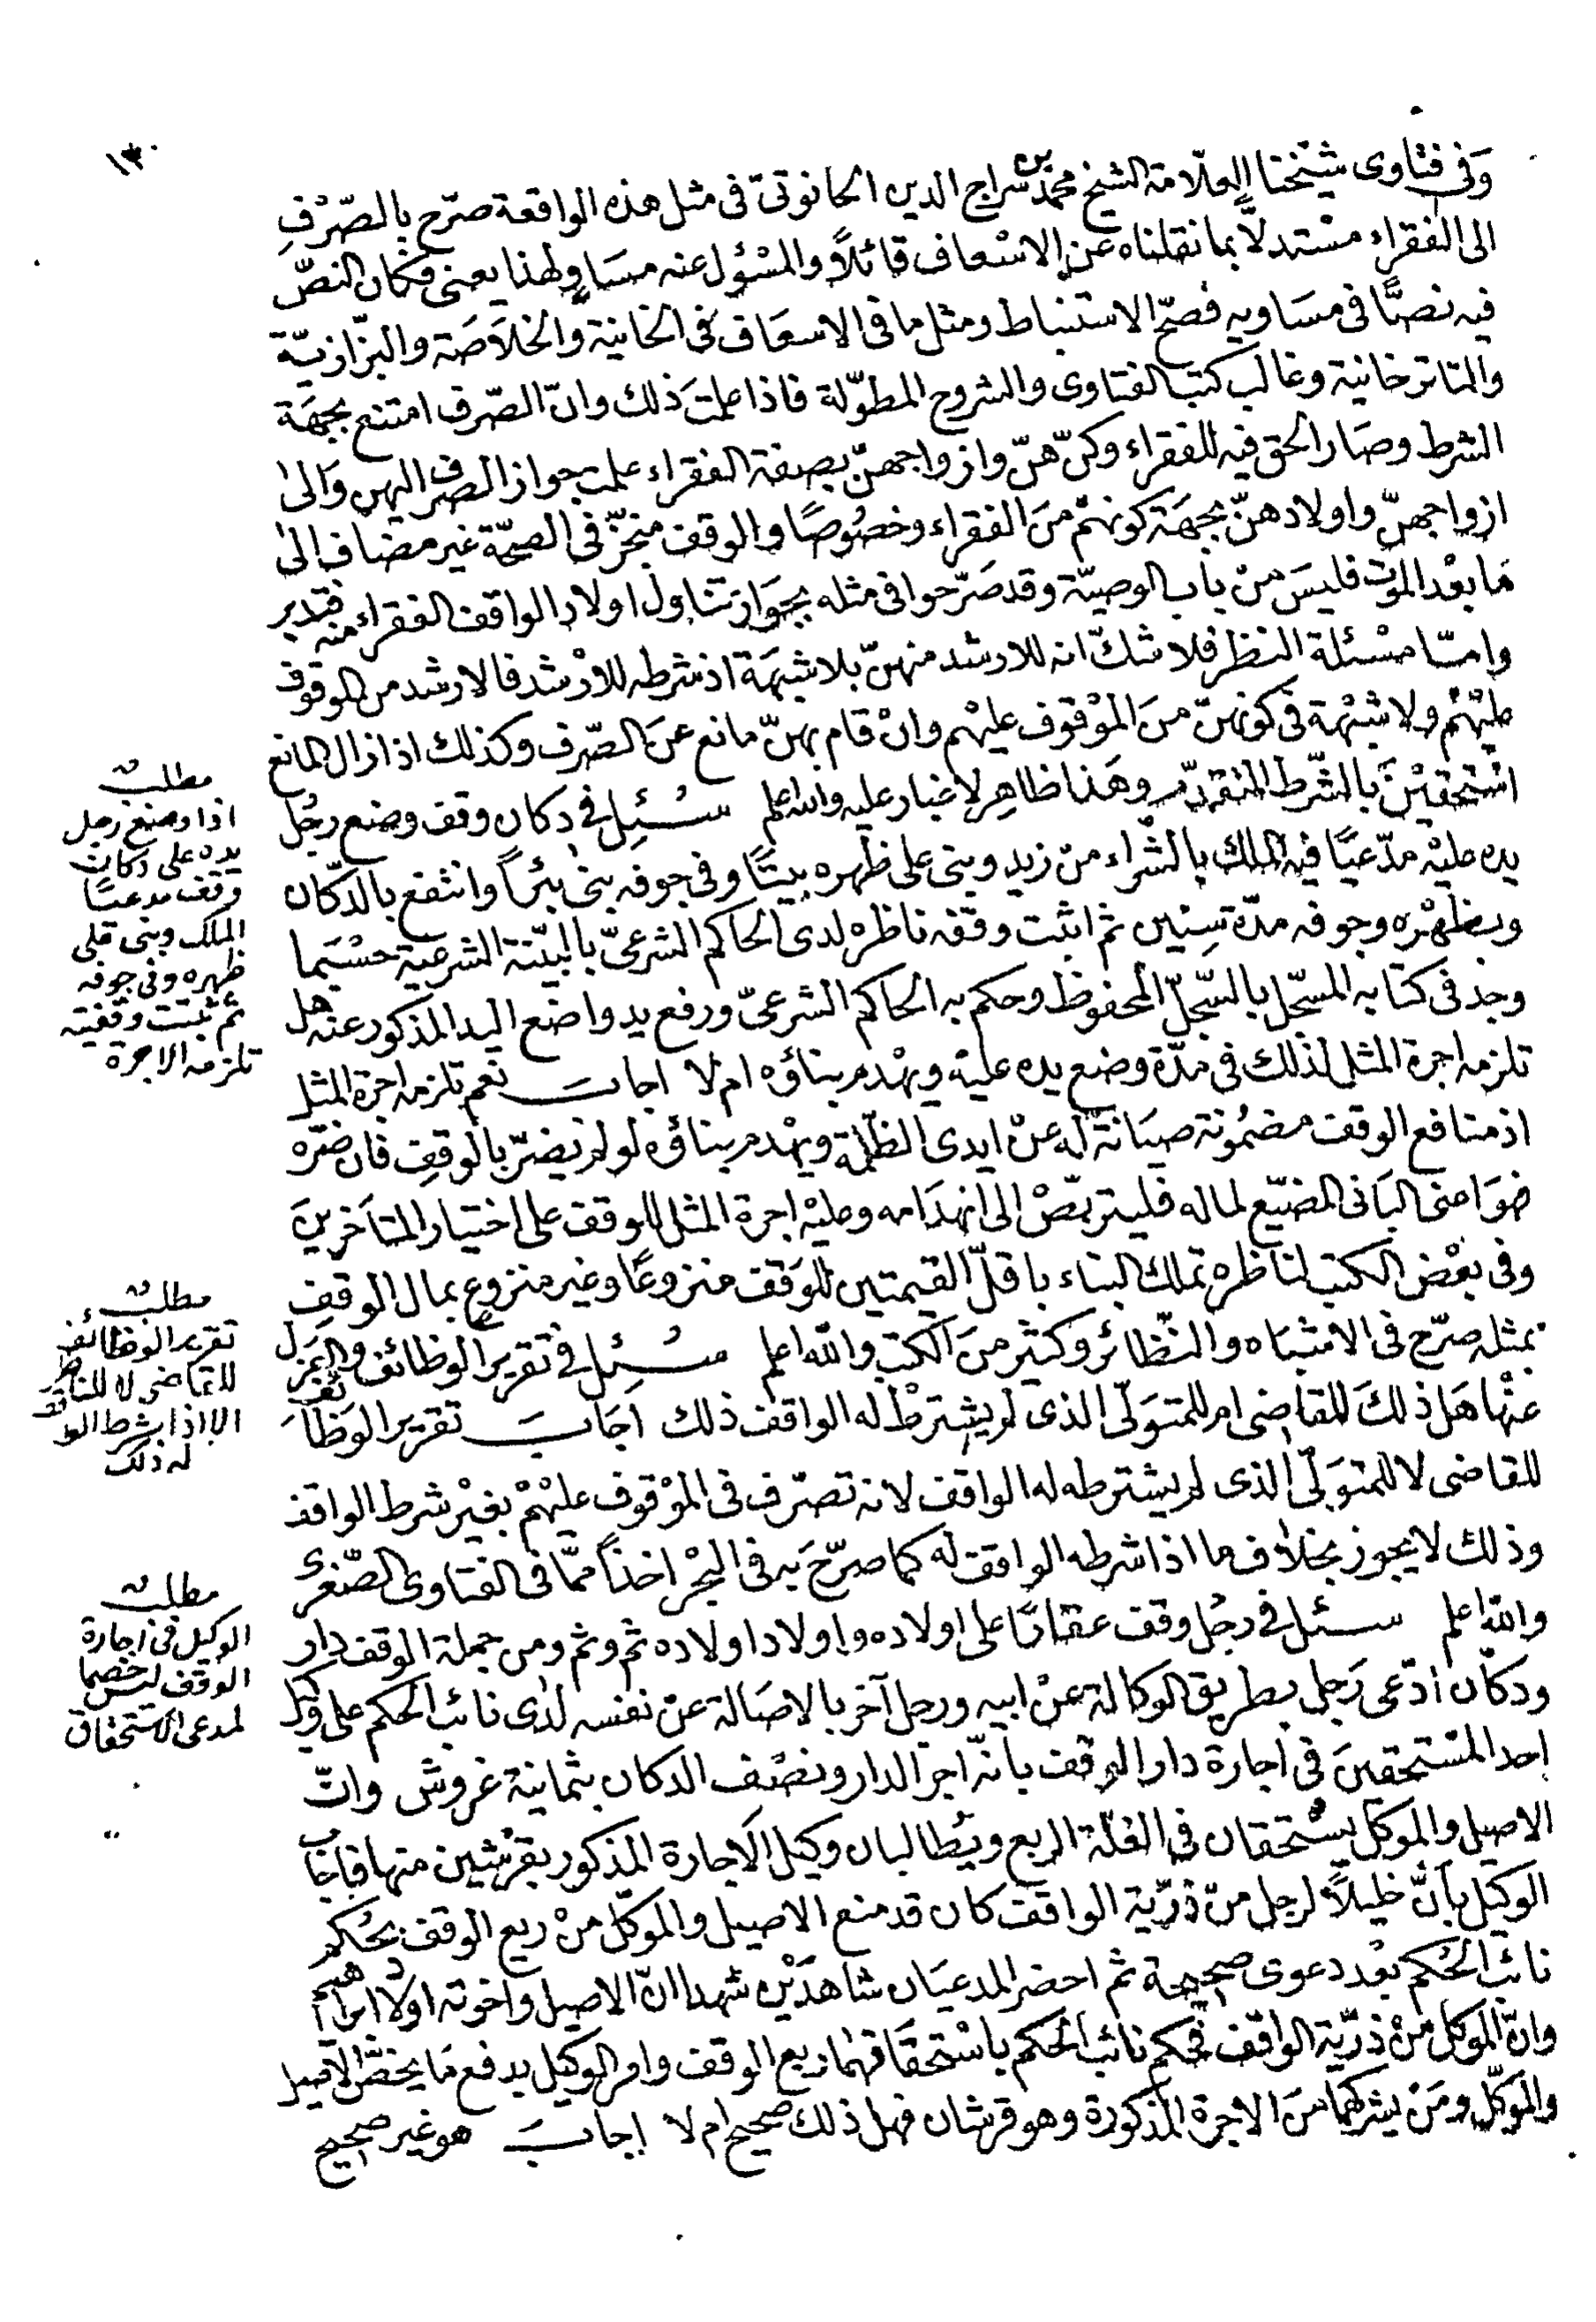 ١٣٠
وفى فتاوى شيخنا العلامة الشيخ محمد بن سراج الدين الحانوتى فى مثل هذه الواقعة صرّح بالصّرْفِ
الى الفقراء مستدلاًّ بما نقلناه عن الاسْعاف قائلاً والمسْؤل عنه مسَاوٍ لهذا يعنى فكان النصّ
فيه نصًّا فى مسَاويه فصحّ الاستنباط ومثل ما فى الاسعَاف فى الخانية والخلاَصَة والبزّازيّة
والتاترخانية وغالب كتب الفتاوى والشروح المطوّلة فاذا علمتَ ذلك وانّ الصّرف امتنع بجهَة
الشرط وصَار الحق فيه للفقراء وكنّ هنّ وازواجهنّ بصفة الفقراء علمت جواز الصرف اليهن وَالى
ازواجهنّ واولادهنّ بجهَة كونهمْ منَ الفقراء وخصُوصًا والوقف منجّز فى الصحّة غير مضاف الى
مَا بعْد الموْت فليسَ منْ باب الوصيّة وقد صَرّحوا فى مثله بجوَاز تناول اولاد الواقف الفقراء منه فتدبر
وامّا مسْئلة النظر فلا شكّ انه للارشد منهنّ بلا شبهَة اذ شرطه للارْشد فالارشد من الموقوف
عليْهمْ ولا شبْهة فى كونهنّ منَ الموْقوف عليْهم وانْ قام بهنّ مانع عنَ الصّرف وكذلك اذا زال المانع
اسْتحقيْنَ بالشّرط المتقدّم وهَذا ظاهِر لا غبار عليه والله اعلم سُئِل فى دكان وقف وضع رجُل
يده عليْه مدّعيًا فيه الملك بالشراء منْ زيد وبنى على ظهره بيتًا وفى جوفه بنى بئراً وانتفع بالدكّان
وبظهْره وجوفه مدّة سِنِين ثم اثبت وقفه ناظره لدى الحاكم الشرعىّ بالبيّنة الشرعية حسْبَما
وجد فى كتابه المسجّل بالسّجلّ المحفوظ وحكم به الحاكم الشرعىّ ورفع يد واضع اليد المذكور عنه هل
تلزمه اجرة المثل لذلك فى مدّة وضع يده عليْه ويهْدم بناؤه ام لا اجابَ نعم تلزمه اجرة المثل
اذ منافع الوقف مضمُونة صيَانةً له عنْ ايدى الظّلمة ويهْدم بناؤه لو لم يضرّ بالوقفِ فان ضرّه
فهوَ اعنى البَانى المضيّع لماله فليتربّصْ الى انهدَامه وعليْه اجرة المثل للوقف على اختيار المتأخرينَ
وفى بعْض الكتب لناظره تملك البناء باقلّ القيمتين للوَقف منزوعًا وغير منزوعٍ بمال الوقفِ
بمثله صرّح فى الاشبَاه والنّظائر وكثير منَ الكتب والله اعلم سُئِل فى تقرير الوظائف والعَزل
عنْها هَل ذلكَ للقاضى ام للمتوَلّى الذى لم يشترطْ له الواقف ذلك اجَابَ تقرير الوَظائف
للقاضى لا للمتوَلّى الذى لم يشترطه له الواقف لانه تصرّف فى الموْقوف عليْهمْ بغيْر شرط الواقف
وذلك لا يجوز بخلاف ما اذا شرطه الواقف له كما صرّحَ به فى البحْر اخذاً ممّا فى الفتاوى الصّغرى
والله اعلم سئل فى رجُل وقف عقارًا على اولاده واولاد اولاده ثم وثم ومن جملة الوقف دار
ودكّان ادّعى رَجل بطريق الوكالة عنْ ابيه ورجل آخر بالاصَالة عنْ نفسه لدى نائب الحكم على وكيل
احد المسْتحقينَ فى اجارة دار الوقف بانّه اجر الدار ونصْف الدكان بثمانية غروش وانّ
الاصيل والموكل يسْتحقان فى الغلّة الربع ويُطالبان وكيل الاجارة المذكور بقرْشين منها فاجاب
الوكيل بانّ خليلاً لرجل منْ ذرّيّة الواقف كان قد منع الاصيل والموكّل منْ ريع الوقف بحُكم
نائب الحُكم بعْد دعوى صحيحة ثم احضر المدعيَان شاهدَيْن شهدا انّ الاصيل واخوته اولاد ابراهيم
وانّ الموكل منْ ذرّيّة الواقف فحكم نائب الحكم باسْتحقَاقهما ريع الوقف وامر الوكيل بدفع مَا يخصّ الاصيل
والموَكّل ومَنْ يشركهما منَ الاجرة المذكورة وهو قرشان فهل ذلك صحيح ام لا اجابَ هو غير صحيح
مطلب
اذا وضع رجل
يده على دكان
وقف مدعيًا
الملك وبنى على
ظهره وفى جوفه
ثم ثبتت وقفيته
تلزمه الاجرة
مطلب
تقرير الوظائف
للقاضى لا للناظر
الا اذا شرط الواقف
له ذلك
مطلب
الوكيل فى اجارة
الوقف ليس خصما
لمدعى الاستحقاق